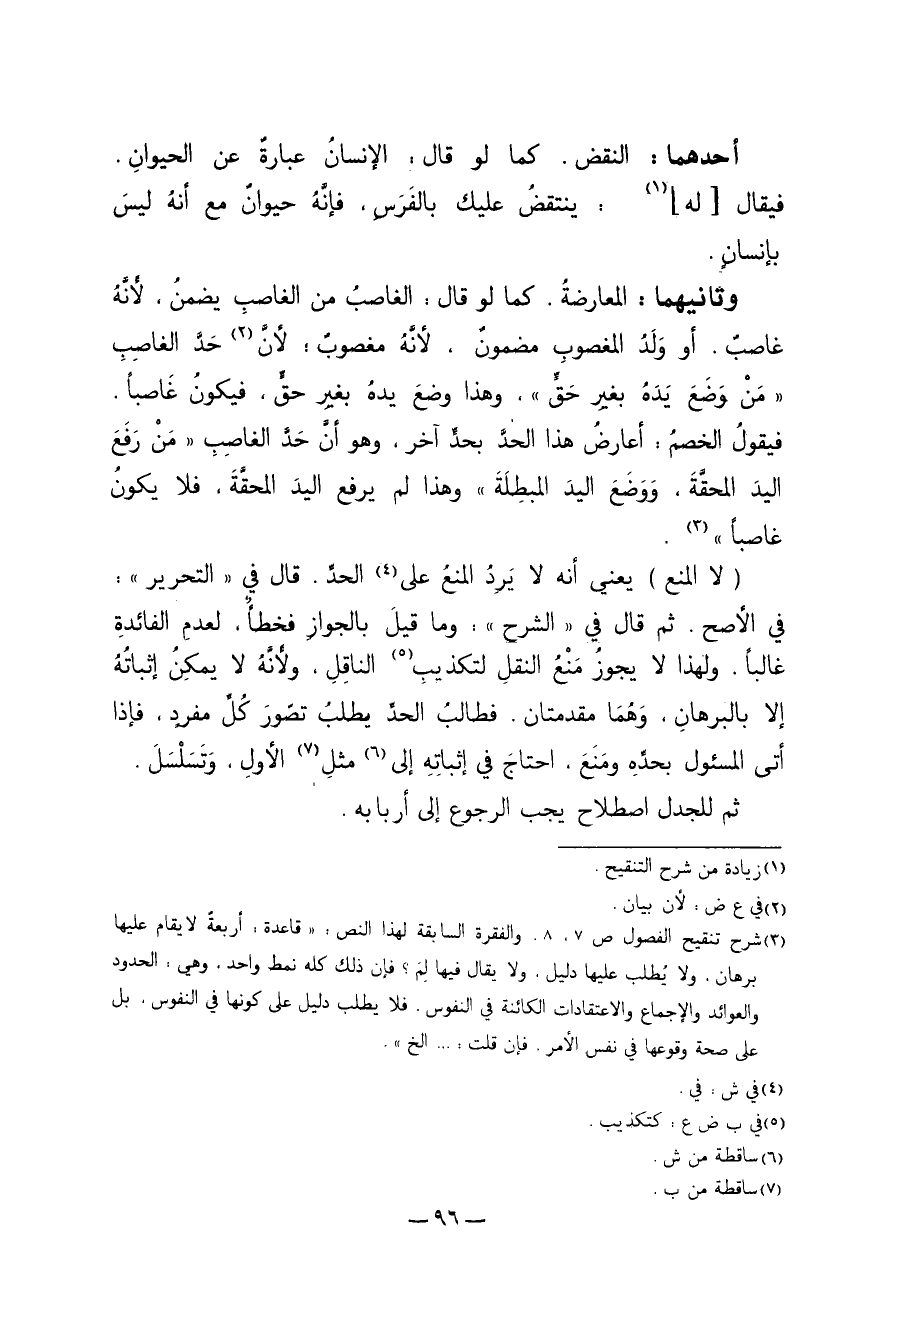 أحدهما : النقض . كما لو قال : الإنسانُ عبارةٌ عن الحيوانِ .
فيقال [ له ](١) : ينتقضُ عليك بالفَرَسِ ، فإنَّهُ حيوانٌ مع أنهُ ليسَ
بإنسانٍ .
وثانيهما : المعارضةُ . كما لو قال : الغاصبُ من الغاصبِ يضمنُ ، لأنَّهُ
غاصبٌ . أو وَلَدُ المغصوبِ مضمونٌ ، لأنَّهُ مغصوبٌ ؛ لأنَّ(٢) حَدَّ الغاصبِ
« مَنْ وَضَعَ يَدَهُ بغيرِ حَقٍّ » ، وهذا وضعَ يدهُ بغيرِ حقٍّ ، فيكونُ غَاصباً .
فيقولُ الخصمُ : أعارضُ هذا الحدَّ بحدٍّ آخر ، وهو أنَّ حَدَّ الغاصبِ « مَنْ رَفَعَ
اليدَ المحقَّةَ ، وَوَضَعَ اليدَ المبطِلَةَ » وهذا لم يرفع اليدَ المحقَّةَ ، فلا يكونُ
غاصباً »(٣) .
( لا المنع ) يعني أنه لا يَرِدُ المنعُ على(٤) الحدِّ . قال في « التحرير » :
في الأصح . ثم قال في « الشرح » : وما قيلَ بالجوازِ فخطأٌ ، لعدمِ الفائدةِ
غالباً . ولهذا لا يجوزُ مَنْعُ النقلِ لتكذيبِ(٥) الناقِلِ ، ولأنَّهُ لا يمكنُ إثباتُهُ
إلا بالبرهانِ ، وَهُمَا مقدمتان . فطالبُ الحدِّ يطلبُ تصّورَ كُلِّ مفردٍ ، فإذا
أتى المسئول بحدِّهِ ومَنَعَ ، احتاجَ في إثباتِهِ إلى(٦) مثلِ(٧) الأولِ ، وَتَسَلْسَلَ .
ثم للجدل اصطلاح يجب الرجوع إلى أربابه .
(١) زيادة من شرح التنقيح .
(٢) في ع ض : لأن بيان .
(٣) شرح تنقيح الفصول ص ٧ ، ٨ . والفقرة السابقة لهذا النص : « قاعدة : أربعةٌ لا يقام عليها
برهان ، ولا يُطلب عليها دليل ، ولا يقال فيها لِمَ ؟ فإن ذلك كله نمط واحد ، وهي : الحدود
والعوائد والإجماع والاعتقادات الكائنة في النفوس . فلا يطلب دليل على كونها في النفوس ، بل
على صحة وقوعها في نفس الأمر . فإن قلت : ... الخ » .
(٤) في ش : في .
(٥) في ب ض ع : كتكذيب .
(٦) ساقطة من ش .
(٧) ساقطة من ب .
— ٩٦ —